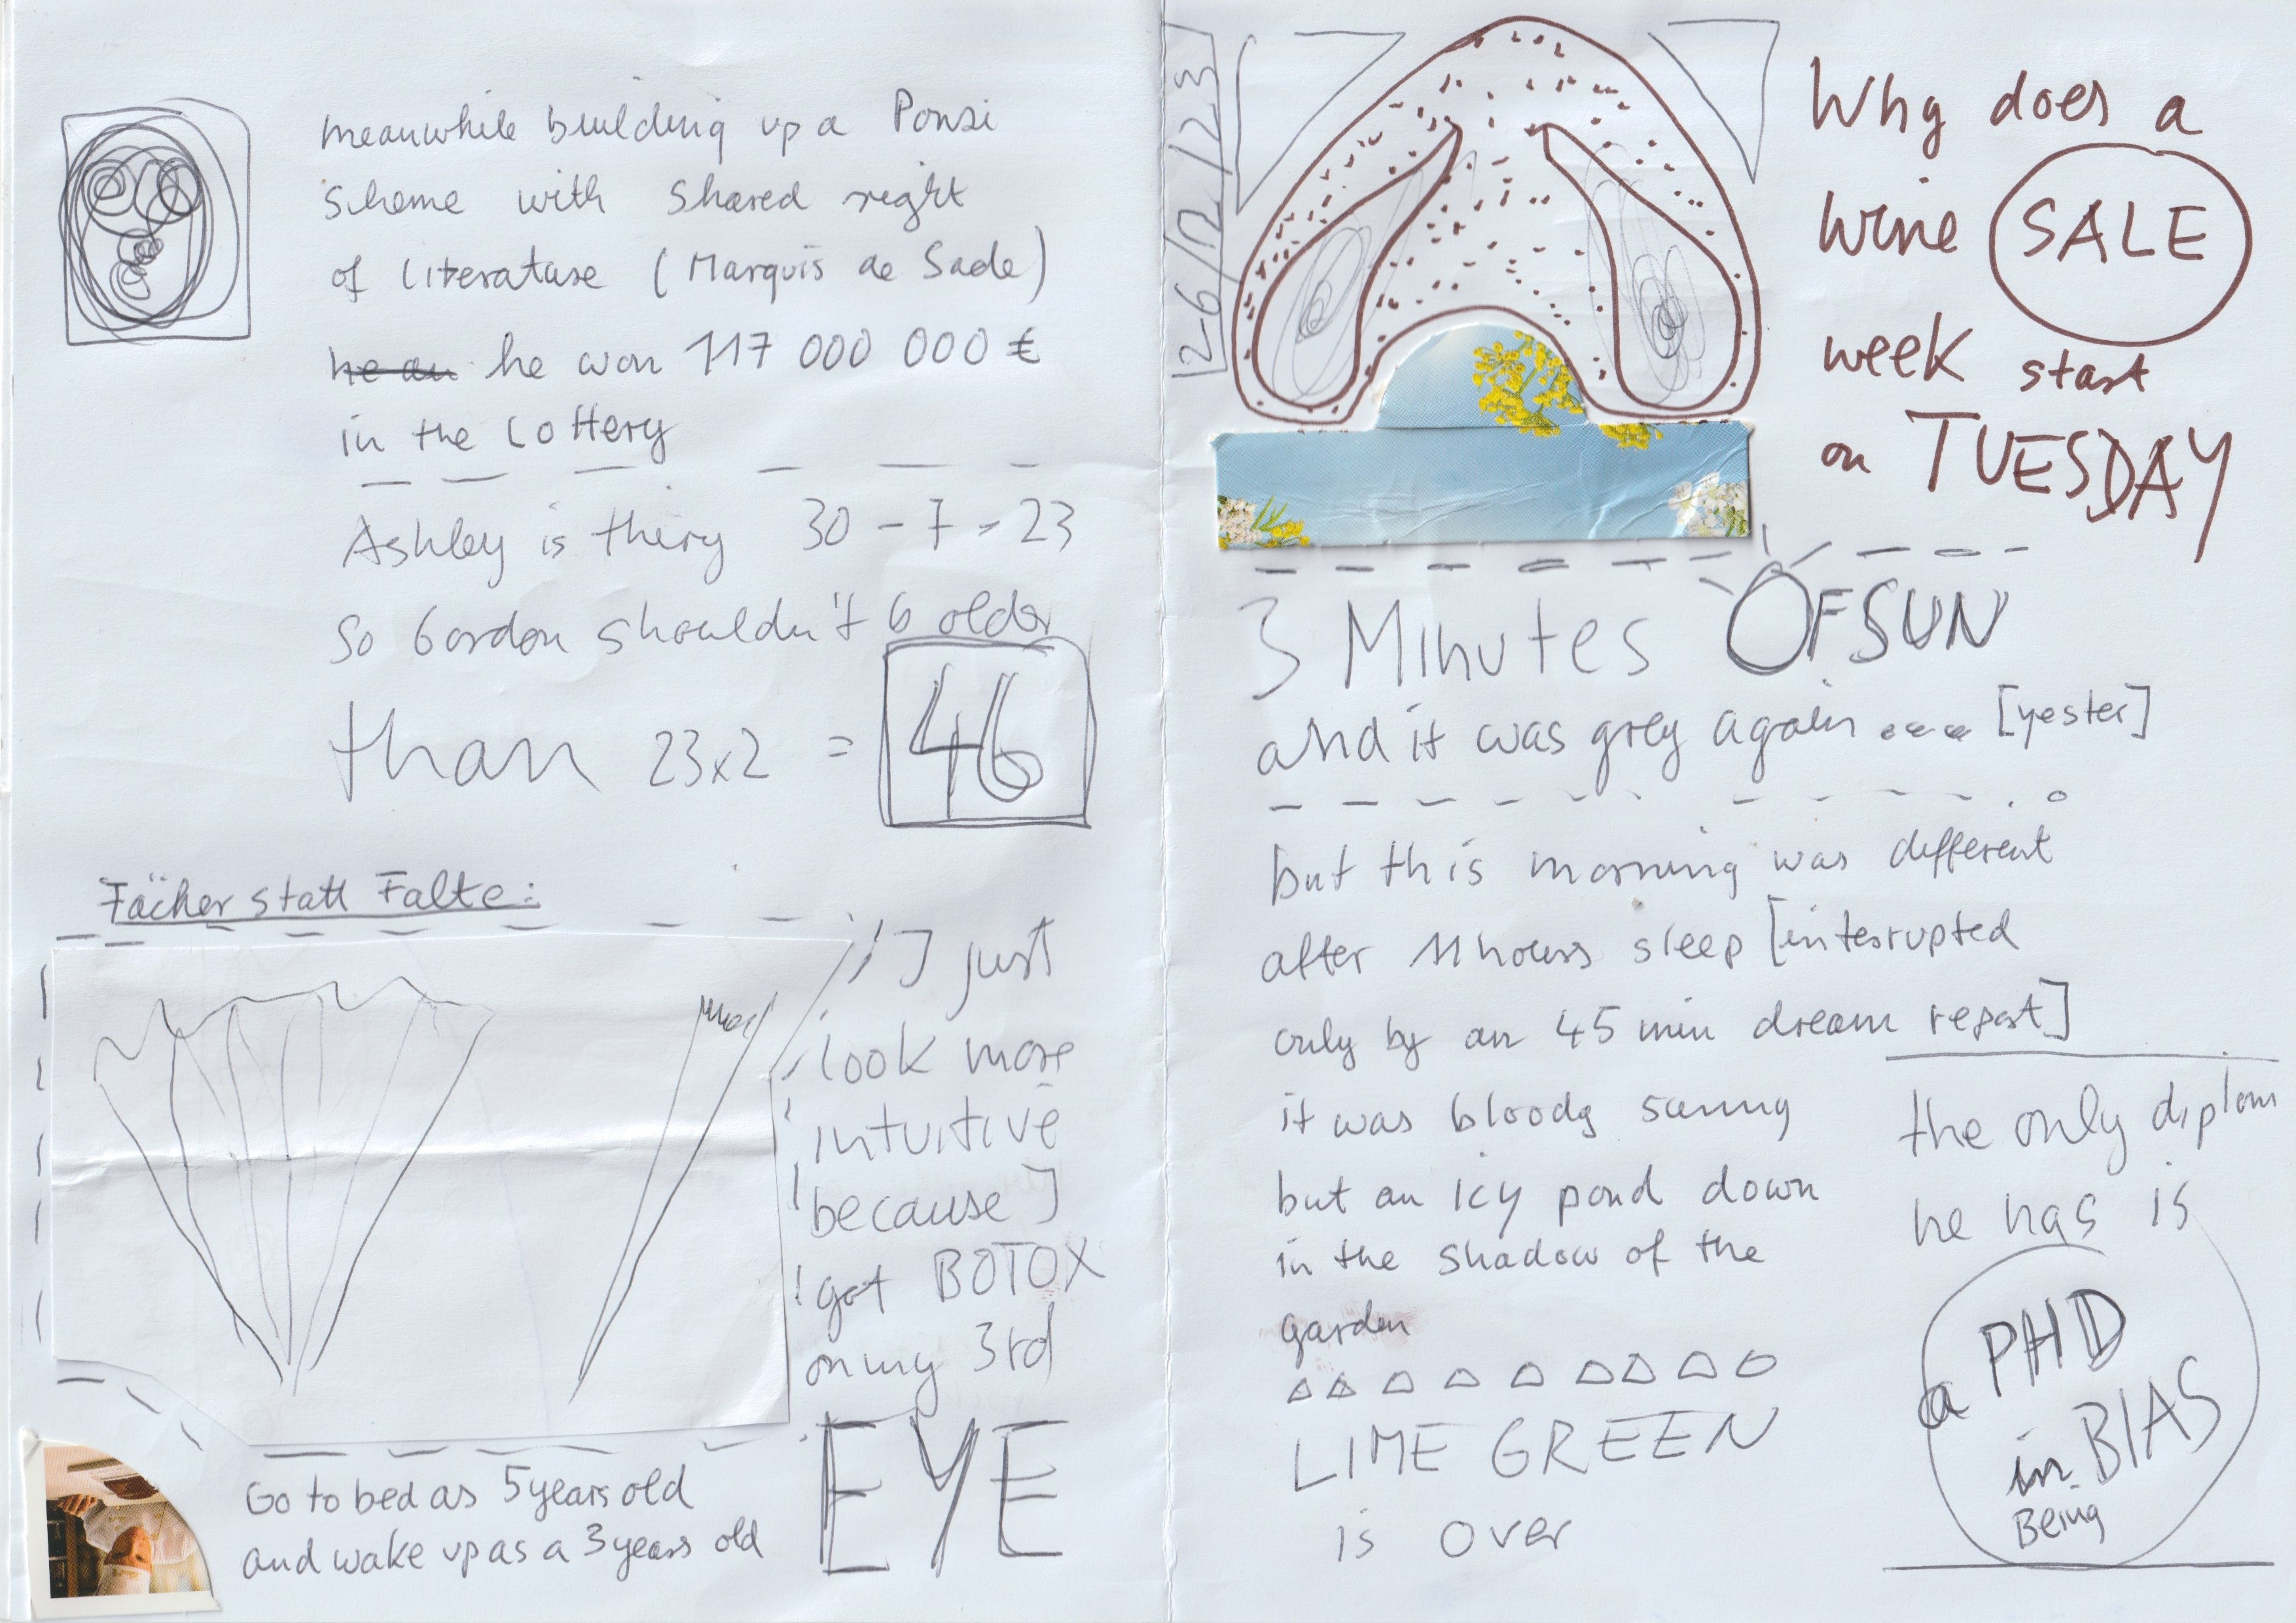 meanwhile building up a Ponsi
Scheme with shared right
of literature (Marquis de Sade)
he an he won 117 000 000 €
in the Lottery
Ashley is thiry 30 - 7 = 23
So Gordon shouldn't b older
than 23x2 = 46
Fächer statt Falte:
I just
look more
intuitive
because I
got BOTOX
on my 3rd
EYE
Go to bed as 5 years old
and wake up as a 3 years old
2-6/12/23
Why does a
wine SALE
week start
on TUESDAY
3 Minutes OF SUN
and it was grey again .... [yester]
but this morning was different
after 11 hours sleep [interrupted
only by an 45 min dream repart]
it was bloody sunny
but an icy pond down
in the shadow of the
garden
LIME GREEN
is over
the only diplom
he has is
a PHD
in BIAS
Being